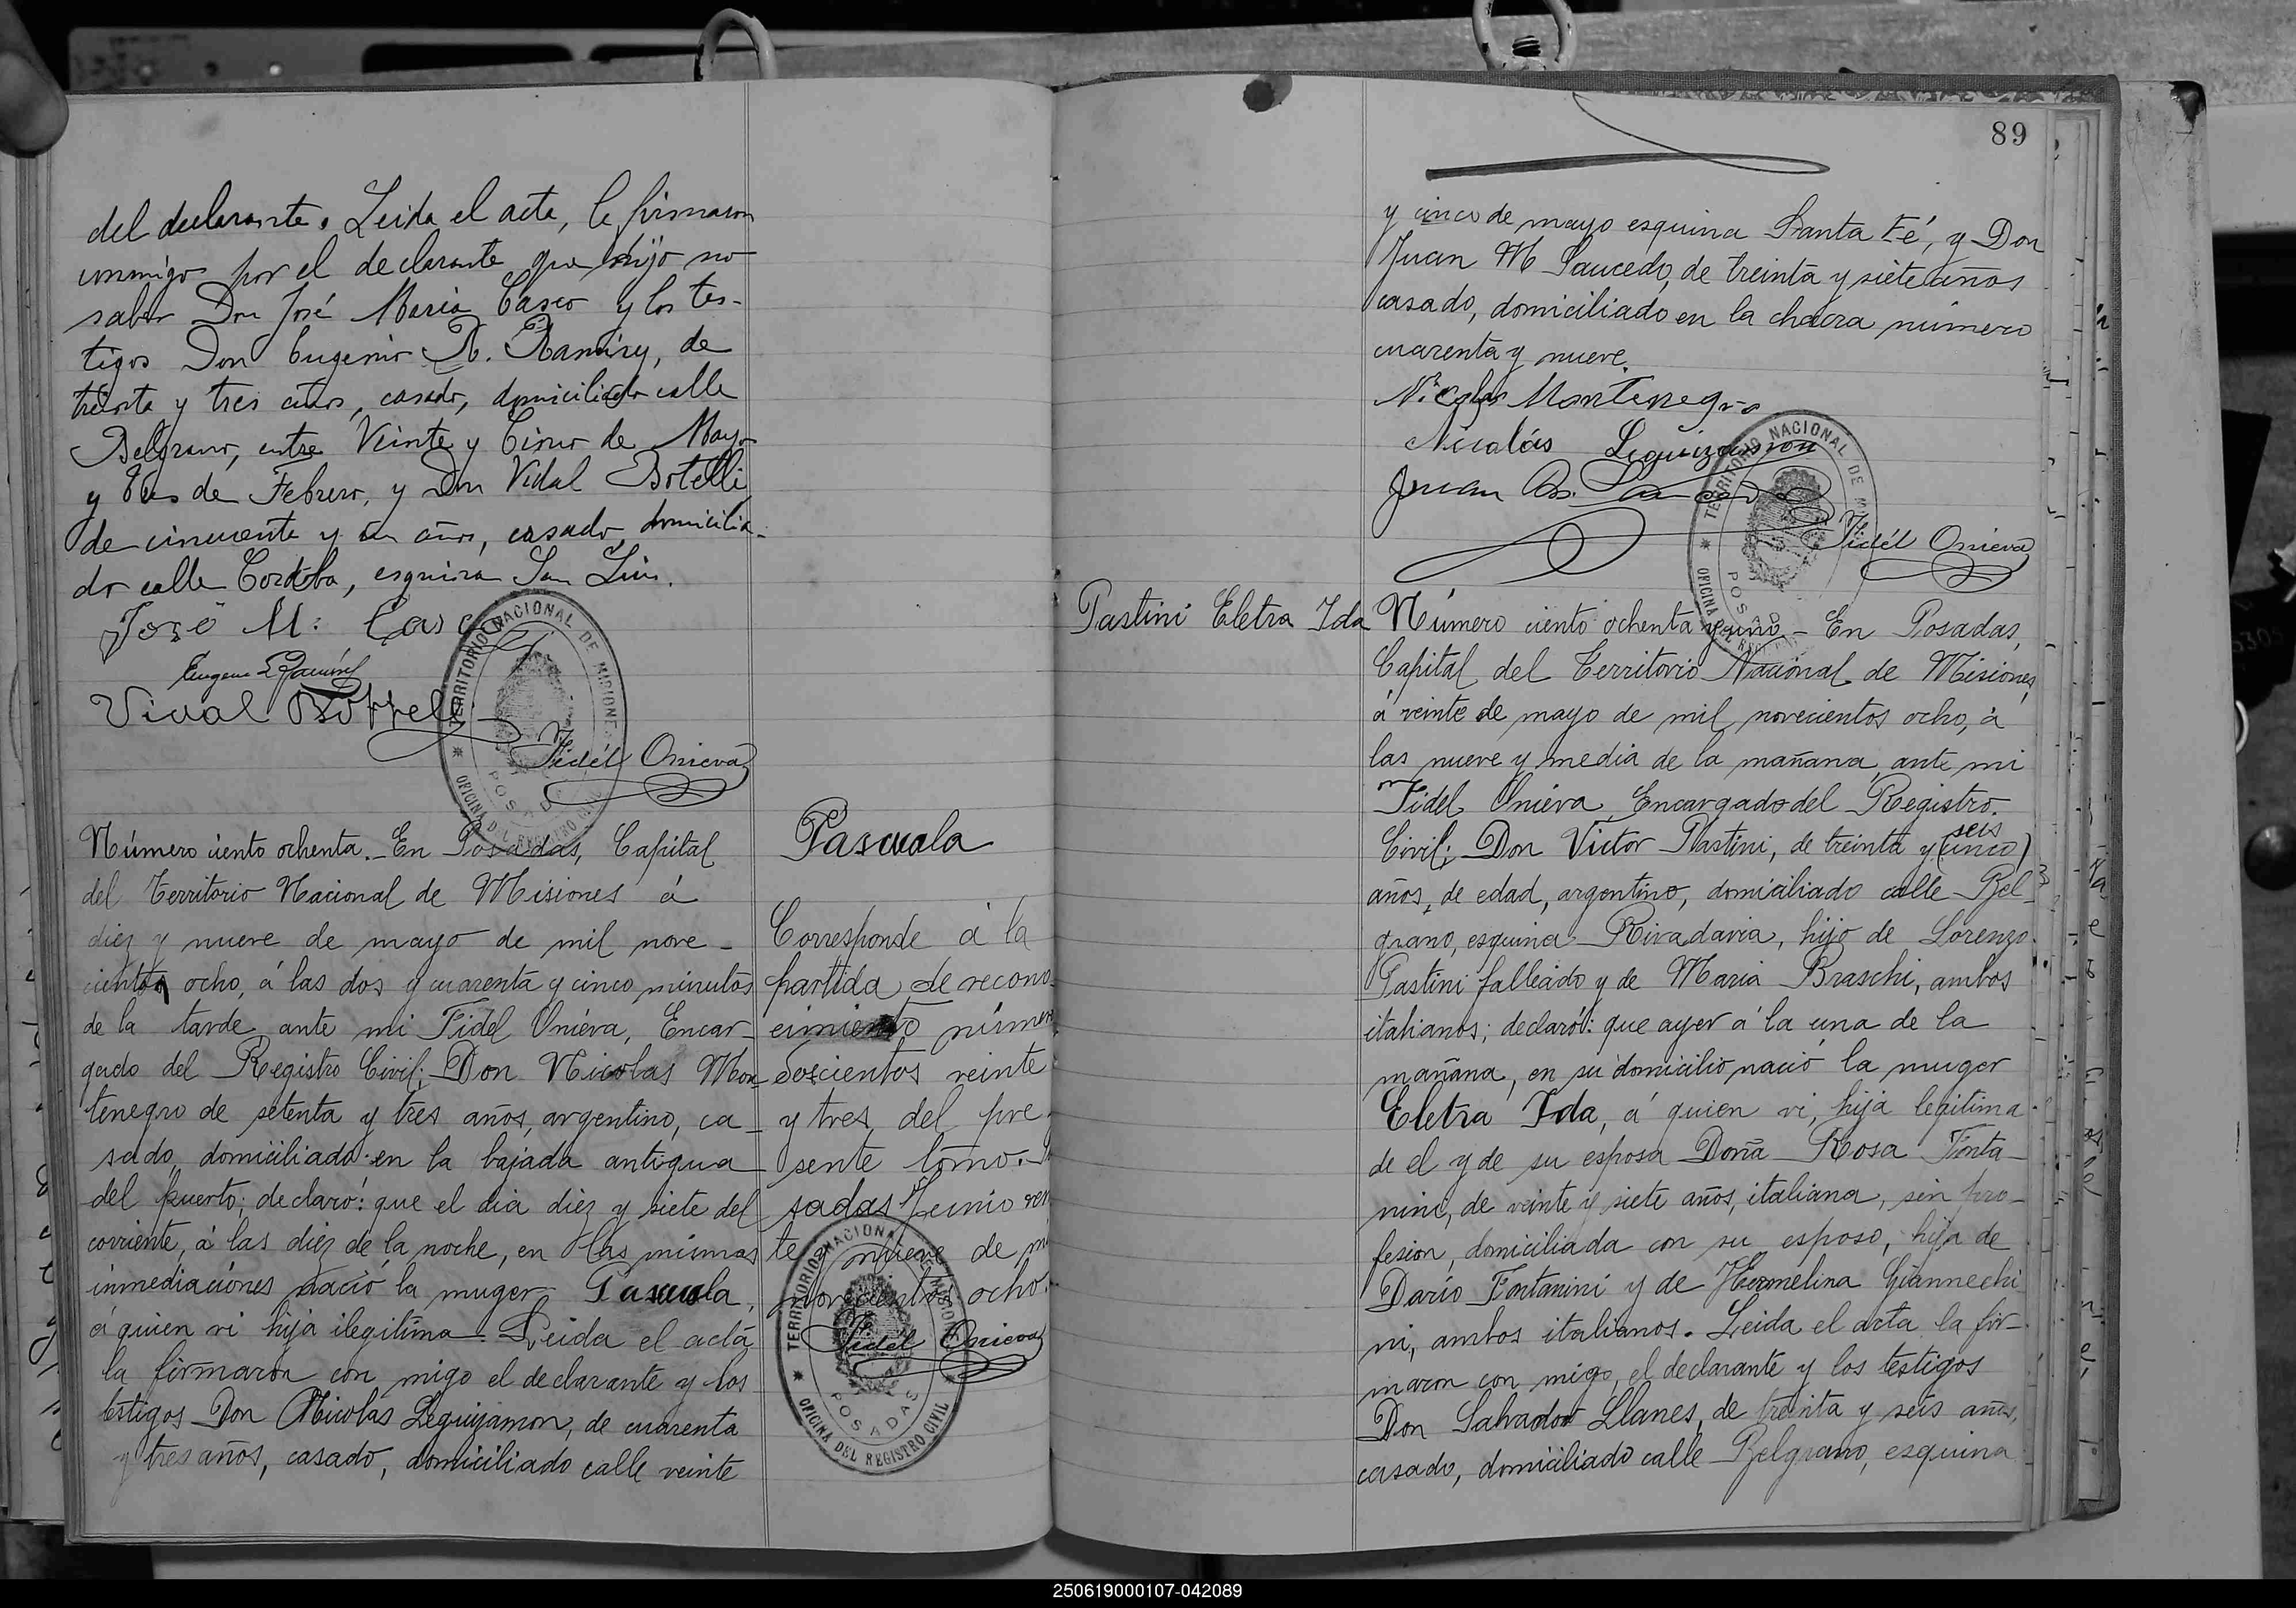 del declarante. Leida el acta, la firmaron
conmigo por el declarante que dijo no
saber Don José Maria Casco y los tes-
tigos Don Eugenio R. Ramirez, de
treinta y tres años, casado, domiciliado calle
Belgrano, entre Veinte y Cinco de Mayo
y Tres de Febrero, y Don Vidal Botelli
de cincuenta y un años, casado, domicilia-
do calle Cordoba, esquina San Luis.
José M. Casco
Eugenio R Ramirez
Vidal Bottelli
Fidél Onieva
TERRITORIO NACIONAL DE MISIONES
POSADAS
OFICINA DEL REGISTRO CIVIL
Número ciento ochenta.- En Posadas, Capital
del Territorio Nacional de Misiones á
diez y nueve de mayo de mil nove-
cientos ocho, á las dos y cuarenta y cinco minutos
de la tarde, ante mi Fidel Oniéva, Encar-
gado del Registro Civil; Don Nicolas Mon-
tenegro de setenta y tres años, argentino, ca-
sado, domiciliado en la bajada antigua
del puerto; declaró: que el dia diez y siete del
corriente, á las diez de la noche, en las mismas
inmediaciones nació la muger Pascuala,
á quien vi hija ilegitima. Leida el acta
la firmaron con migo el declarante y los
testigos Don Nicolas Leguizamon, de cuarenta
y tres años, casado, domiciliado calle veinte
Pascuala
Corresponde á la
partida de recono-
cimiento número
doscientos veinte
y tres del pre-
sente tomo.-
sadas Junio vein
te y nueve de mi
novecientos ocho.
Fidél Onieva
TERRITORIO NACIONAL DE MISIONES
POSADAS
OFICINA DEL REGISTRO CIVIL
89
y cinco de mayo esquina Santa Fé, y Don
Juan M Saucedo, de treinta y siete años
casado, domiciliado en la chacra número
cuarenta y nueve.
Nicolas Montenegro
Nicolás Leguizamon
Juan
Fidél Onieva
TERRITORIO NACIONAL DE MISIONES
POSADAS
OFICINA DEL REGISTRO CIVIL
Pastini Eletra Ida
Número ciento ochenta y uno - En Posadas,
Capital del Territorio Nacional de Misiones,
á veinte de mayo de mil novecientos ocho, á
las nueve y media de la mañana, ante mi
Fidel Oniéva Encargado del Registro
Civil; Don Victor Pastini, de treinta y (cinco) seis
años, de edad, argentino, domiciliado calle Bel-
grano, esquina Rivadavia, hijo de Lorenzo
Pastini fallecido y de Maria Braschi, ambos
italianos; declaró: que ayer á la una de la
mañana, en su domicilio nació la muger
Eletra Ida, á quien vi, hija legitima
de el y de su esposa Doña Rosa Fonta-
nini, de veinte y siete años, italiana, sin pro-
fesion, domiciliada con su esposo, hija de
Darío Fontanini y de Hermelina Giannechi
ni, ambos italianos. Leida el acta la fir-
maron con migo, el declarante y los testigos
Don Salvador Llanes, de treinta y seis años,
casado, domiciliado calle Belgrano, esquina
250619000107-042089